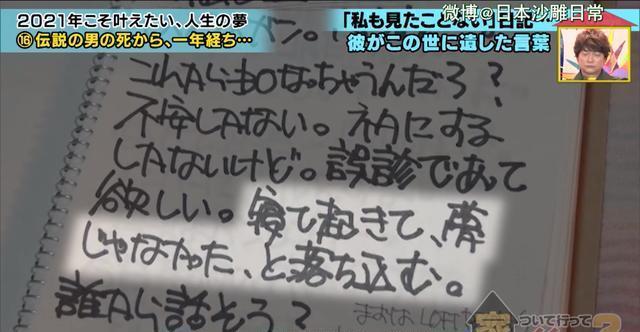 2021年こそ叶えたい、人生の夢
⑯伝説の男の死から、一年経ち…
「私も見たことない」日記
微博@日本沙雕日常
彼がこの世に遺した言葉
これからどうなっちゃうんだろ？
不安しかない。ネタにする
しかないけど。誤診であって
欲しい。寝て起きて、夢
じゃなかった、と落ち込む。
誰から話そう？
LOFT
家、ついて行って